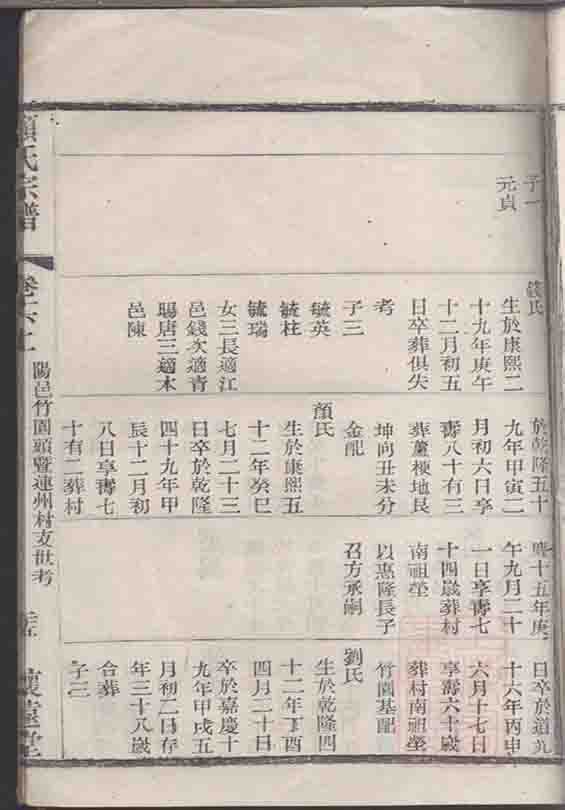 子一
元貞
錢氏
生於康熙二
十九年庚午
十二月初五
日卒葬俱失
考
子三
毓英
毓柱
毓瑞
女三長適江
邑錢次適青
賜唐三適本
邑陳
於乾隆五十
九年甲寅二
月初六日享
壽八十有三
葬簾梗地艮
坤向丑未分
金配
顏氏
生於康熙五
十二年癸巳
七月二十三
日卒於乾隆
四十九年甲
辰十二月初
八日享壽七
十有二葬村
慶十五年庚
午九月二十
一日享壽七
十四歲葬村
南祖塋
以惠隆長子
召方承嗣
日卒於道光
十六年丙申
六月十七日
享壽六十歲
葬村南祖塋
竹園基配
劉氏
生於乾隆四
十二年丁酉
四月二十日
卒於嘉慶十
九年甲戌五
月初二日存
年三十八歲
合葬
子三
氏宗譜
陽邑竹園頭暨連州村支世考